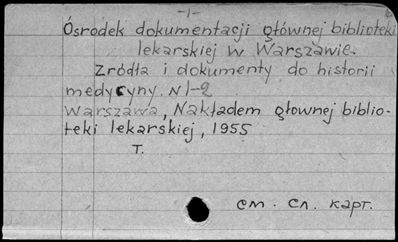 -1-
Ósrodek dokumentacji głównej biblioteki
lekarskiej w Warszawie.
Zródła i dokumenty do historii
medycyny. N 1-2
Warszawa, Nakładem głownej biblio-
teki lekarskiej, 1955
T.
см. сл. карт.